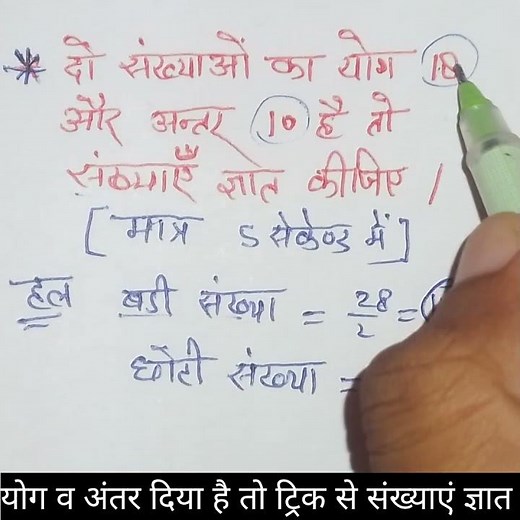 * दो संख्याओं का योग 18
और अन्तर 10 है तो
संख्याएँ ज्ञात कीजिए।
[मात्र 5 सेकेण्ड में]
हल बडी संख्या = 28/2 =
छोटी संख्या =
योग व अंतर दिया है तो ट्रिक से संख्याएं ज्ञात